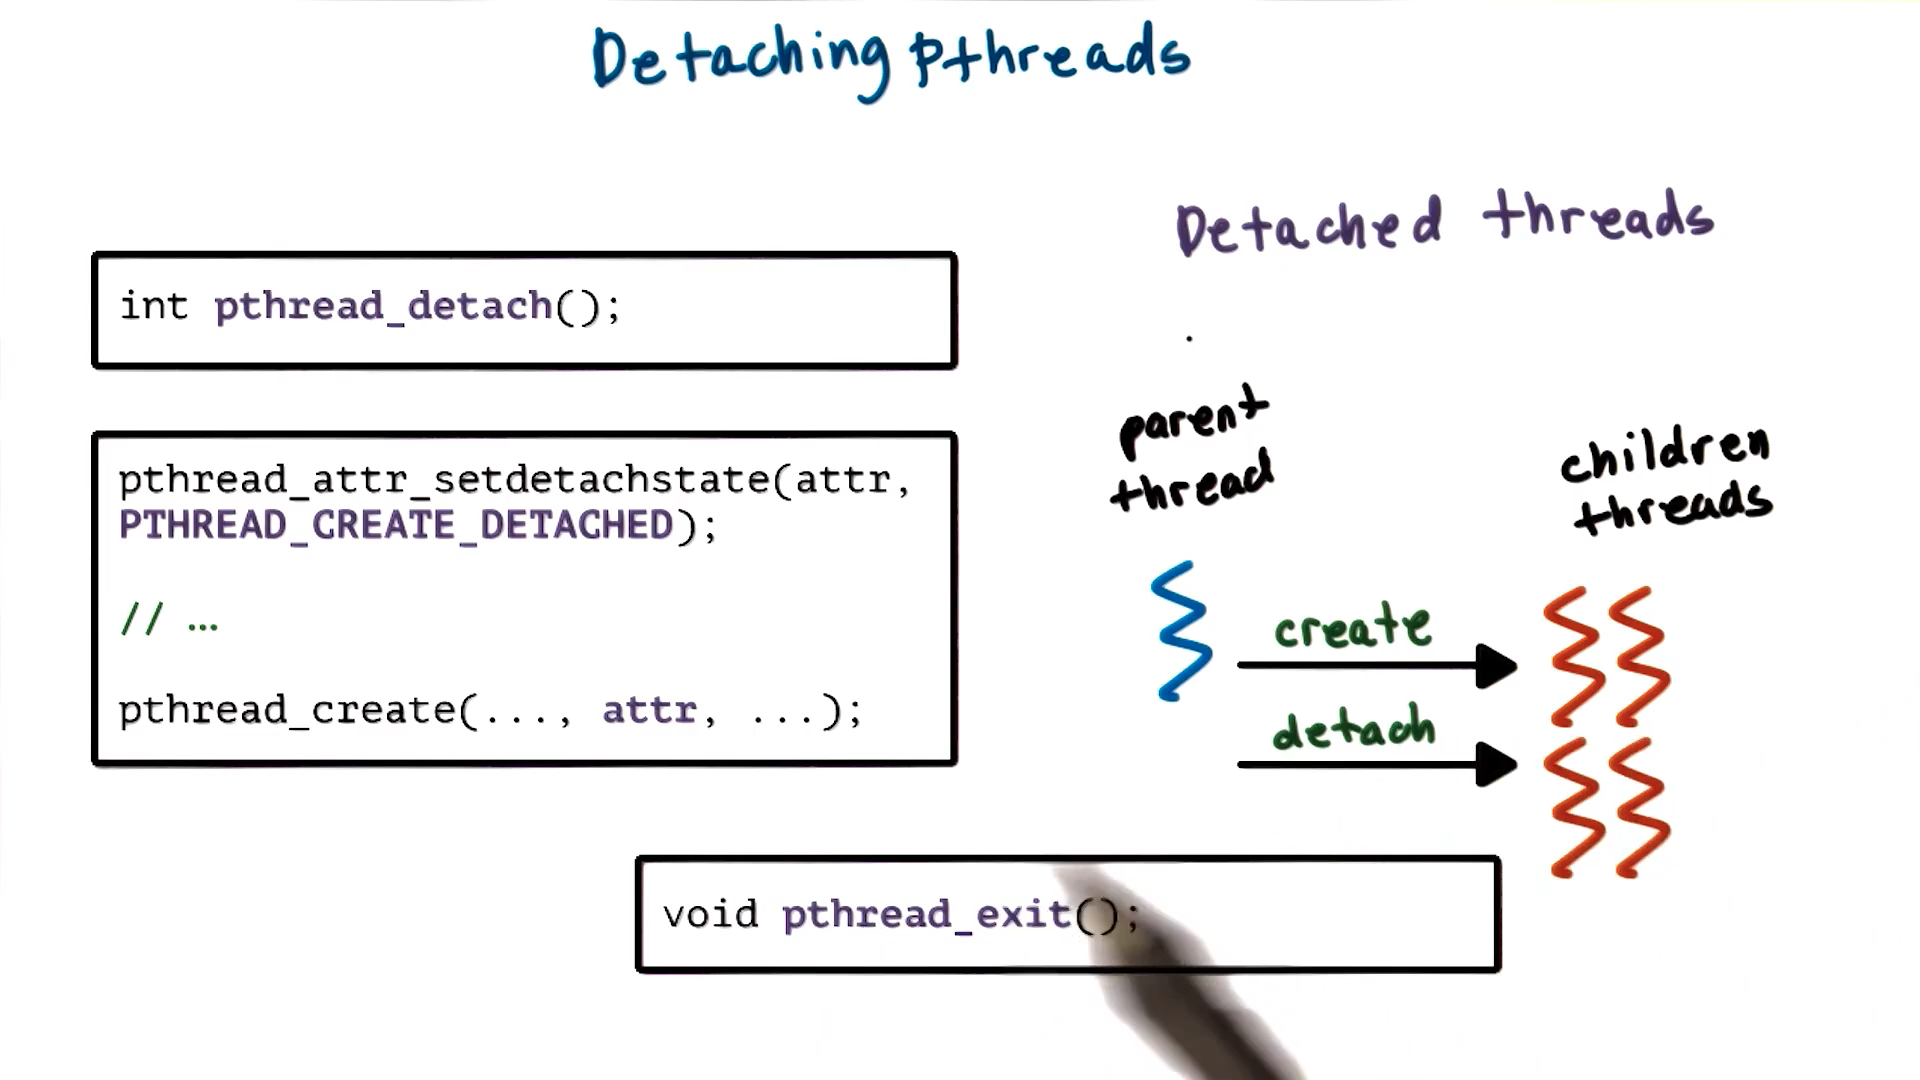 Detaching pthreads
Detached threads
int pthread_detach();
pthread_attr_setdetachstate(attr,
PTHREAD_CREATE_DETACHED);
// ...
pthread_create(..., attr, ...);
parent
thread
children
threads
create
detach
void pthread_exit();